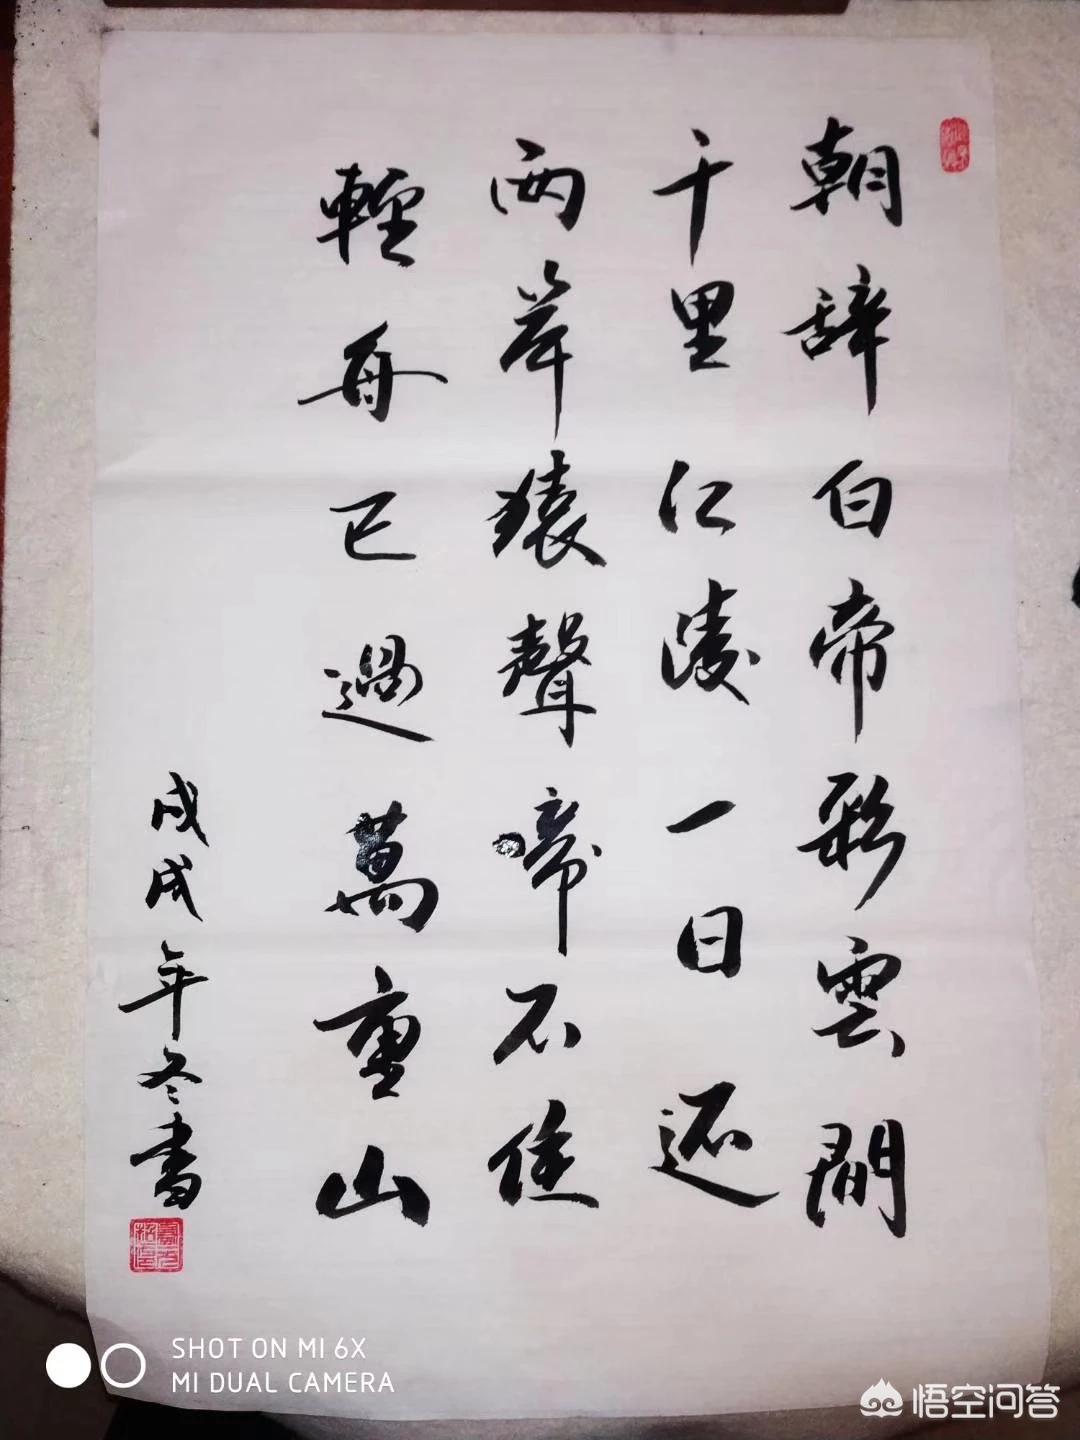 朝辞白帝彩雲間
千里江陵一日还
兩岸猿聲啼不住
輕舟已過萬重山
戊戌年冬書
SHOT ON MI 6X
MI DUAL CAMERA
悟空问答